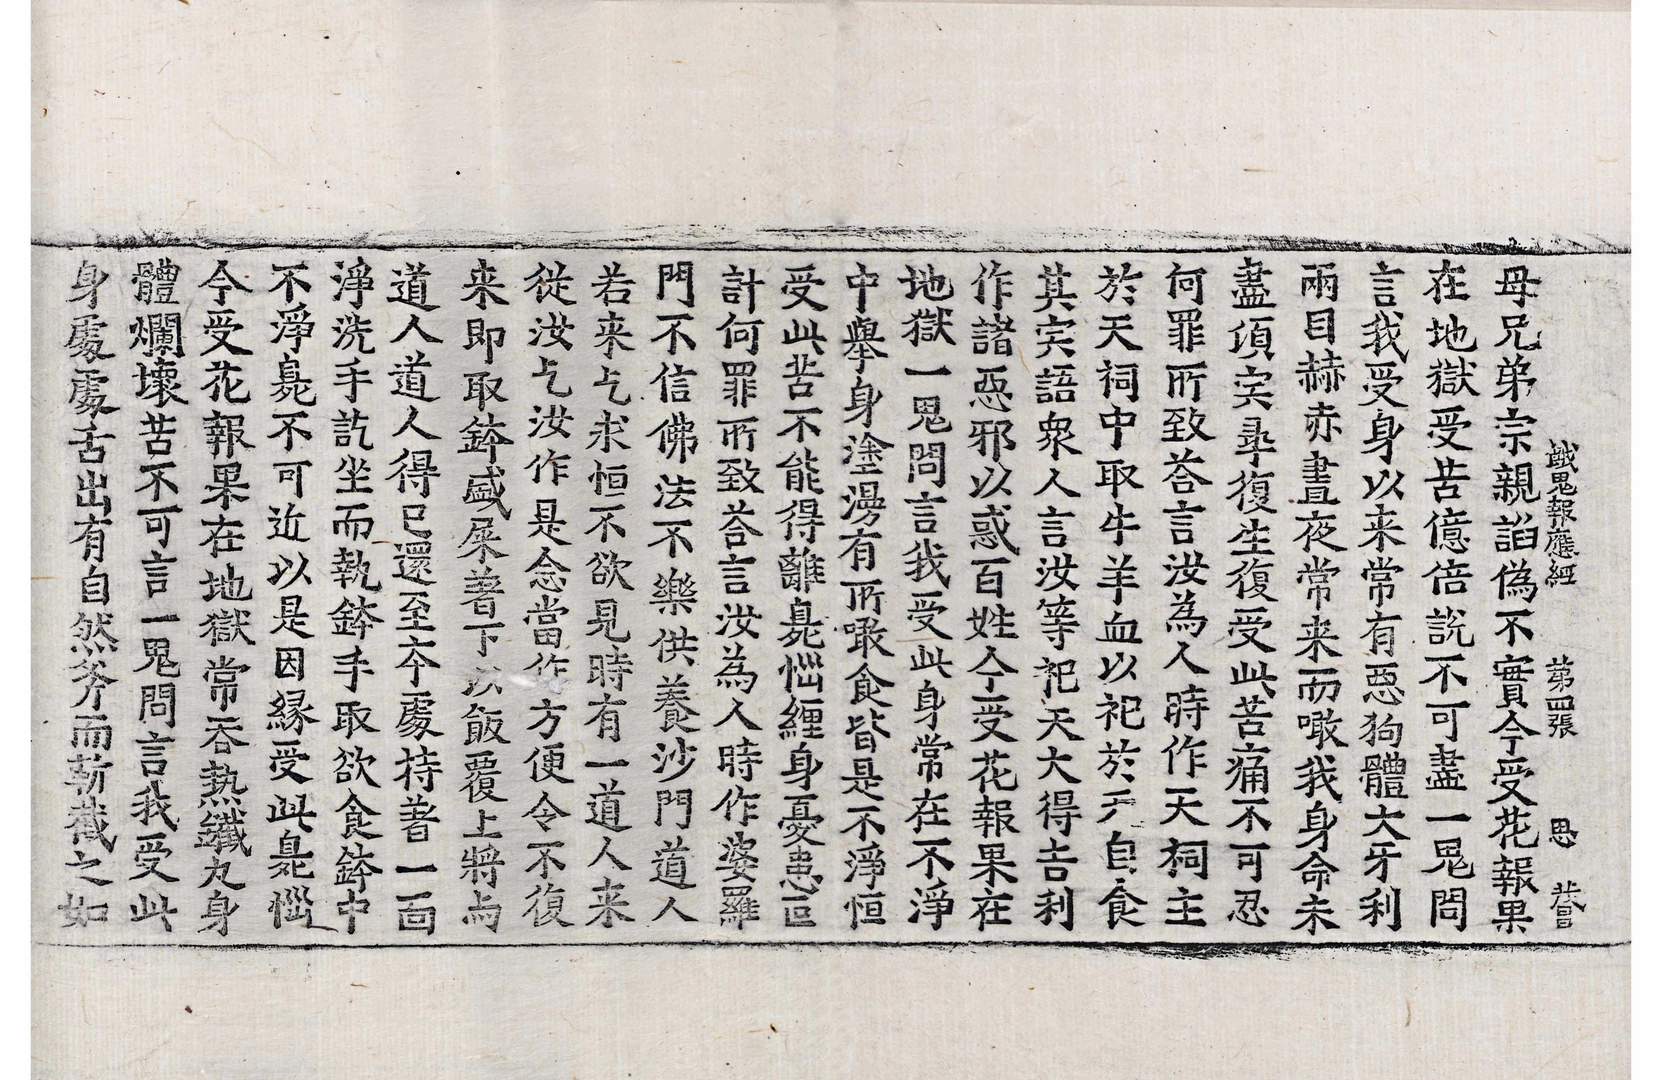 餓鬼報應經 第四張 思 
母兄弟宗親諂偽不實今受花報果
在地獄受苦億倍說不可盡一鬼問
言我受身以来常有惡狗體大牙利
兩目赫赤晝夜常来而噉我身命未
盡須㬰尋復生復受此苦痛不可忍
何罪所致荅言汝為人時作天祠主
於天祠中取牛羊血以祀於天自食
其宍語衆人言汝等祀天大得吉利
作諸惡邪以惑百姓今受花報果在
地獄一鬼問言我受此身常在不淨
中舉身塗漫有所噉食皆是不淨恒
受此苦不能得離臰惱纏身憂患叵
計何罪所致荅言汝為人時作婆羅
門不信佛法不樂供養沙門道人
若来乞求恒不欲見時有一道人来
從汝乞汝作是念當作方便令不復
来即取鉢盛屎著下以飯覆上將与
道人道人得已還至本處持著一面
淨洗手訖坐而執鉢手取欲食鉢中
不淨臰不可近以是因緣受此臰惱
今受花報果在地獄常吞熱鐵丸身
體爛壞苦不可言一鬼問言我受此
身處處舌出有自然斧而斬截之如